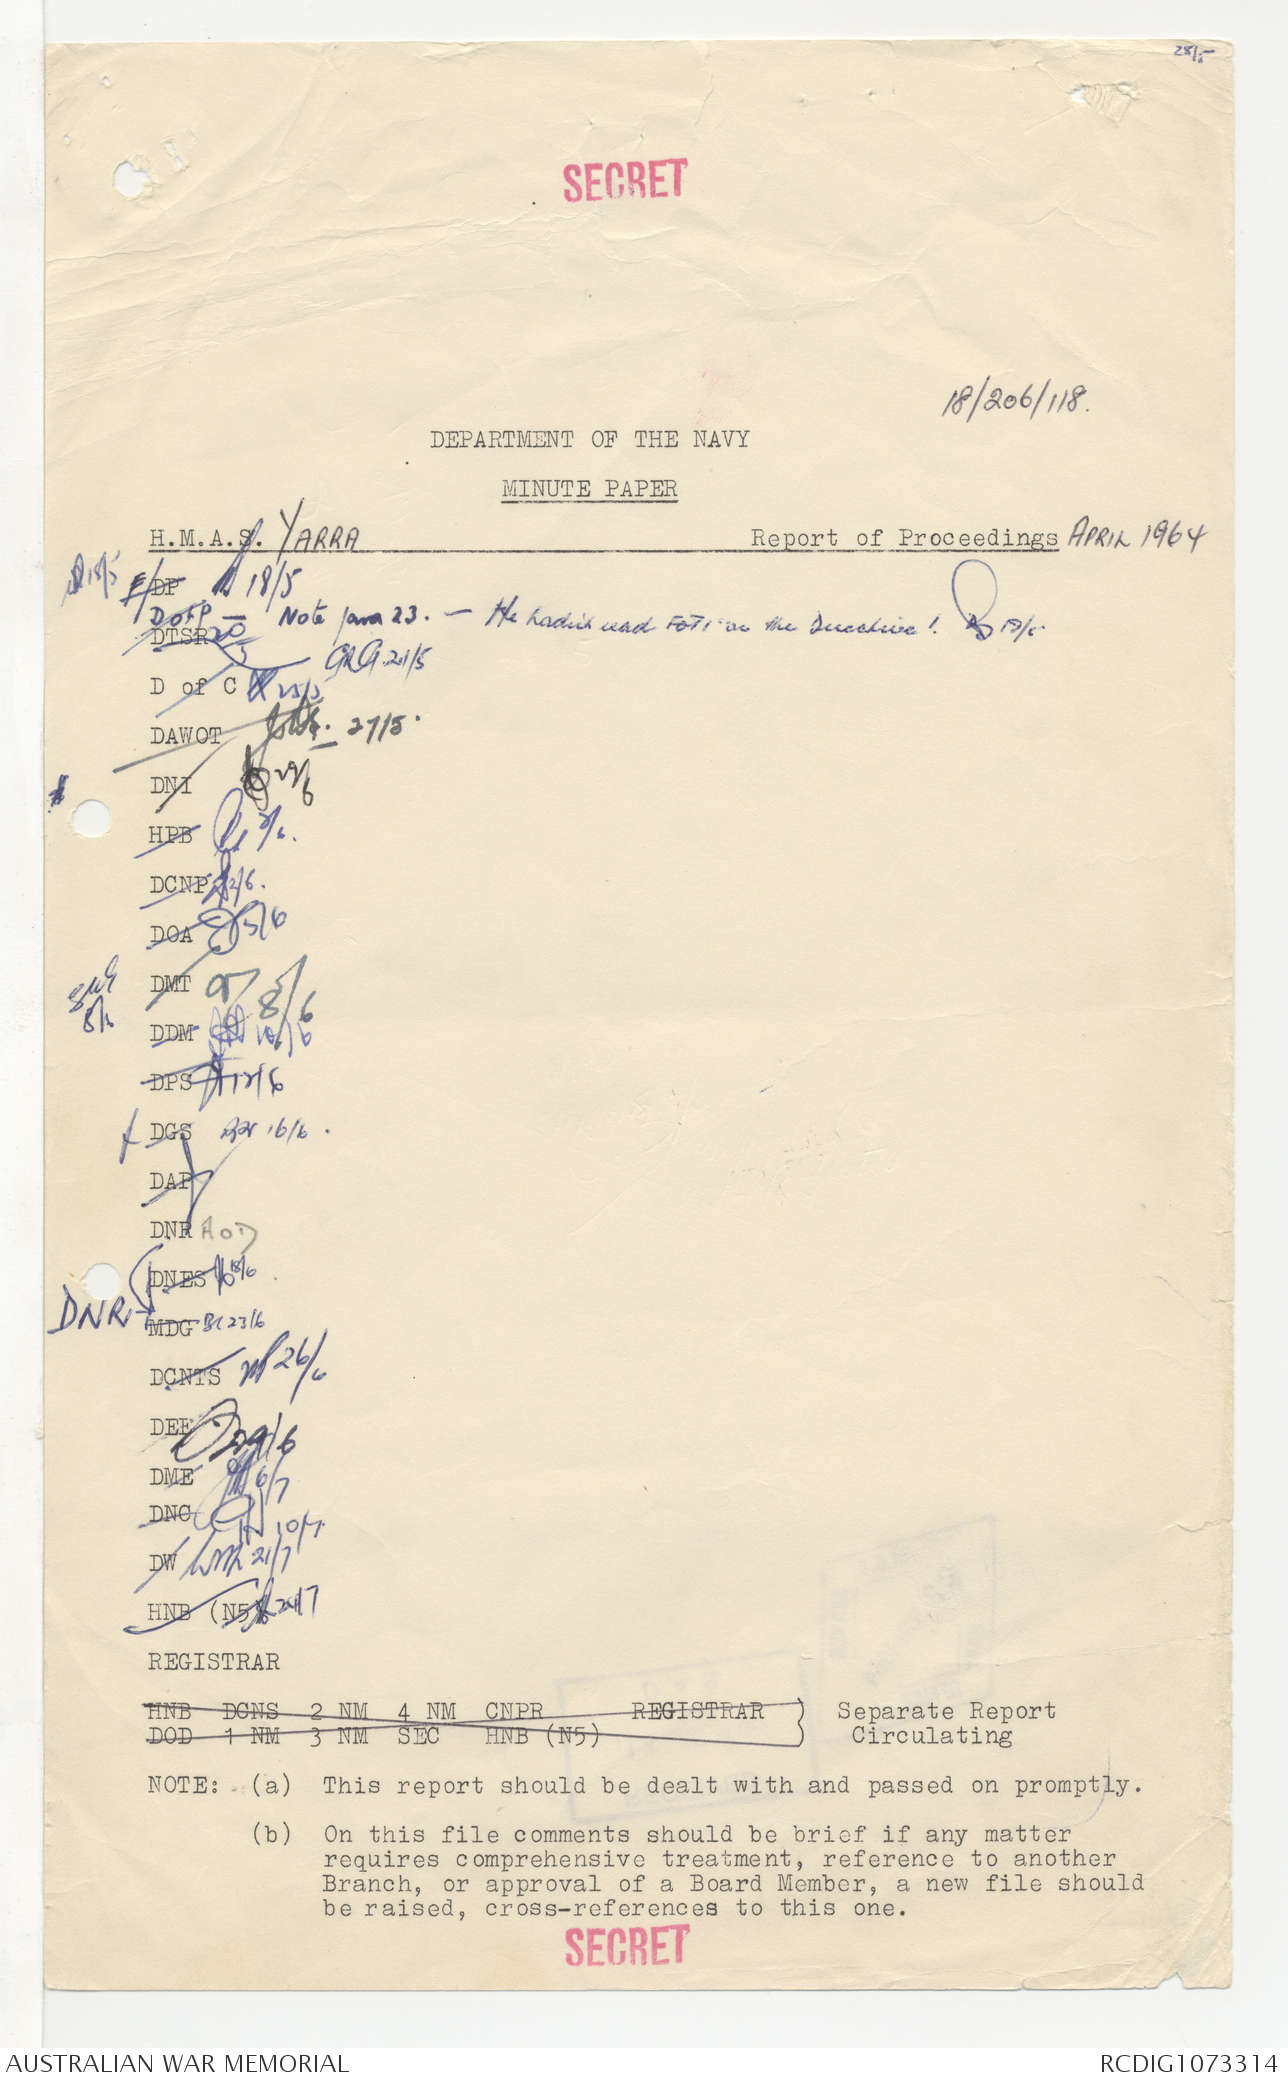 28/5
SECRET
18/206/118.
DEPARTMENT OF THE NAVY
MINUTE PAPER
H.M.A.S. YARRA Report of Proceedings APRIL 1964
18/5
DP 18/5
D of P — Note para 23. — He hadn't read on the Directive!
DTSR 20/5
GRG 21/5
D of C 25/5
DAWOT 27/5.
DNI
HPB 2/6.
DCNP 2/6.
DOA 5/6
DMT 8/6
8/6
DDM 10/6
DPS 12/6
DGS 16/6.
DAP
DNR AOD
DNES 18/6
DNR
MDG 23/6
DCNTS 26/6
DEE 29/6
DME 6/7
DNC 10/7.
DW 21/7
HNB (N5) 24/7
REGISTRAR
HNB DCNS 2 NM 4 NM CNPR REGISTRAR ) Separate Report
DOD 1 NM 3 NM SEC HNB (N5) ) Circulating
NOTE: (a) This report should be dealt with and passed on promptly.
(b) On this file comments should be brief if any matter
requires comprehensive treatment, reference to another
Branch, or approval of a Board Member, a new file should
be raised, cross-references to this one.
SECRET
AUSTRALIAN WAR MEMORIAL RCDIG1073314